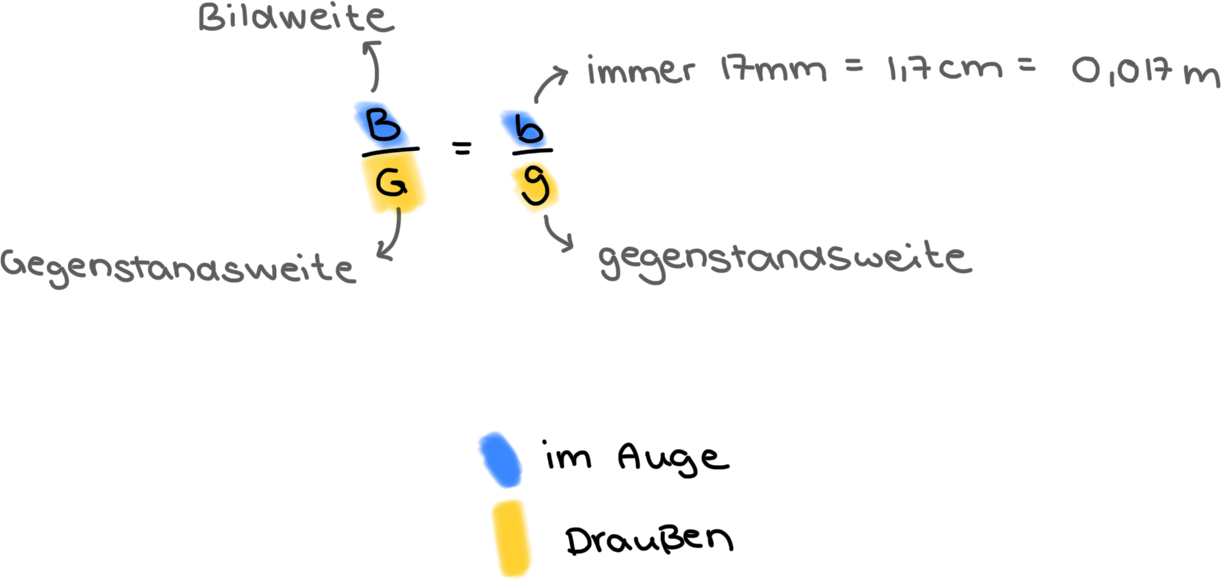 Bildweite
immer 17mm = 1,7cm = 0,017m
B/G = b/g
Gegenstandsweite
gegenstandsweite
im Auge
Draußen